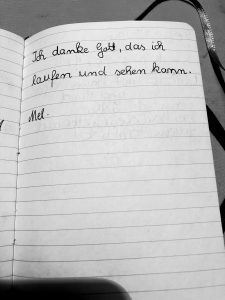 Ich danke Gott, das ich
laufen und sehen kann.
Mel.